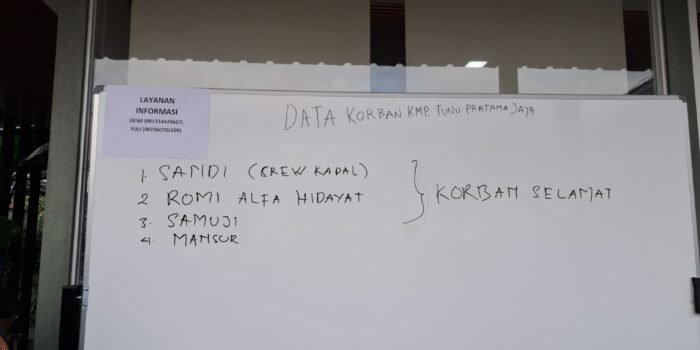 LAYANAN
INFORMASI
DEWI (081234429667)
YULI (082360703299)
DATA KORBAN KMP. TUNU PRATAMA JAYA
1. SANDI (CREW KAPAL)
2 ROMI ALFA HIDAYAT
3. SAMUJI
4. MANSUR
KORBAN SELAMAT